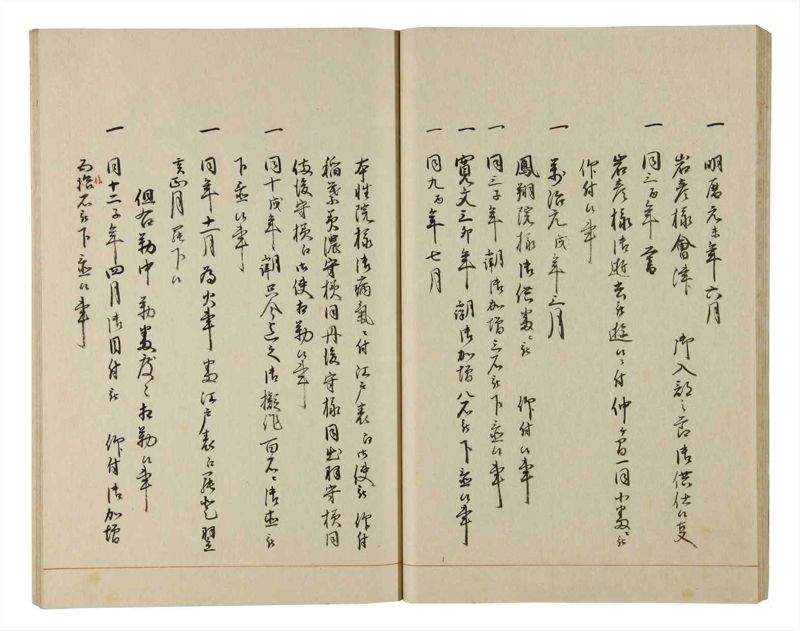 一 明暦元未年六月
岩彦様會津 御入部之節御供仕候事
一 同三酉年 暮
岩彦様御逝去被遊候ニ付仲ヶ間一同小 ニ被
仰付候事
一 萬治元戌年三月
鳳翔院様御供 被 仰付候事
一 同三子年 御加増三石被下置候事
一 寛文三卯年 御加増八石被下置候事
一 同九酉年七月
本性院様御病氣ニ付江戸表江御使被 仰付
稲葉美濃守様同丹後守様同出羽守様同
備後守様江御使相勤候事
一 同十戌年 只今迄之御擬作百石ニ御直被
下置候事
一 同年十二月為火事 江戸表江罷登翌
亥正月罷下ル
但右勤中 勤 度々相勤候事
一 同十二子年四月御目付被 仰付御加増
五拾石被下置候事